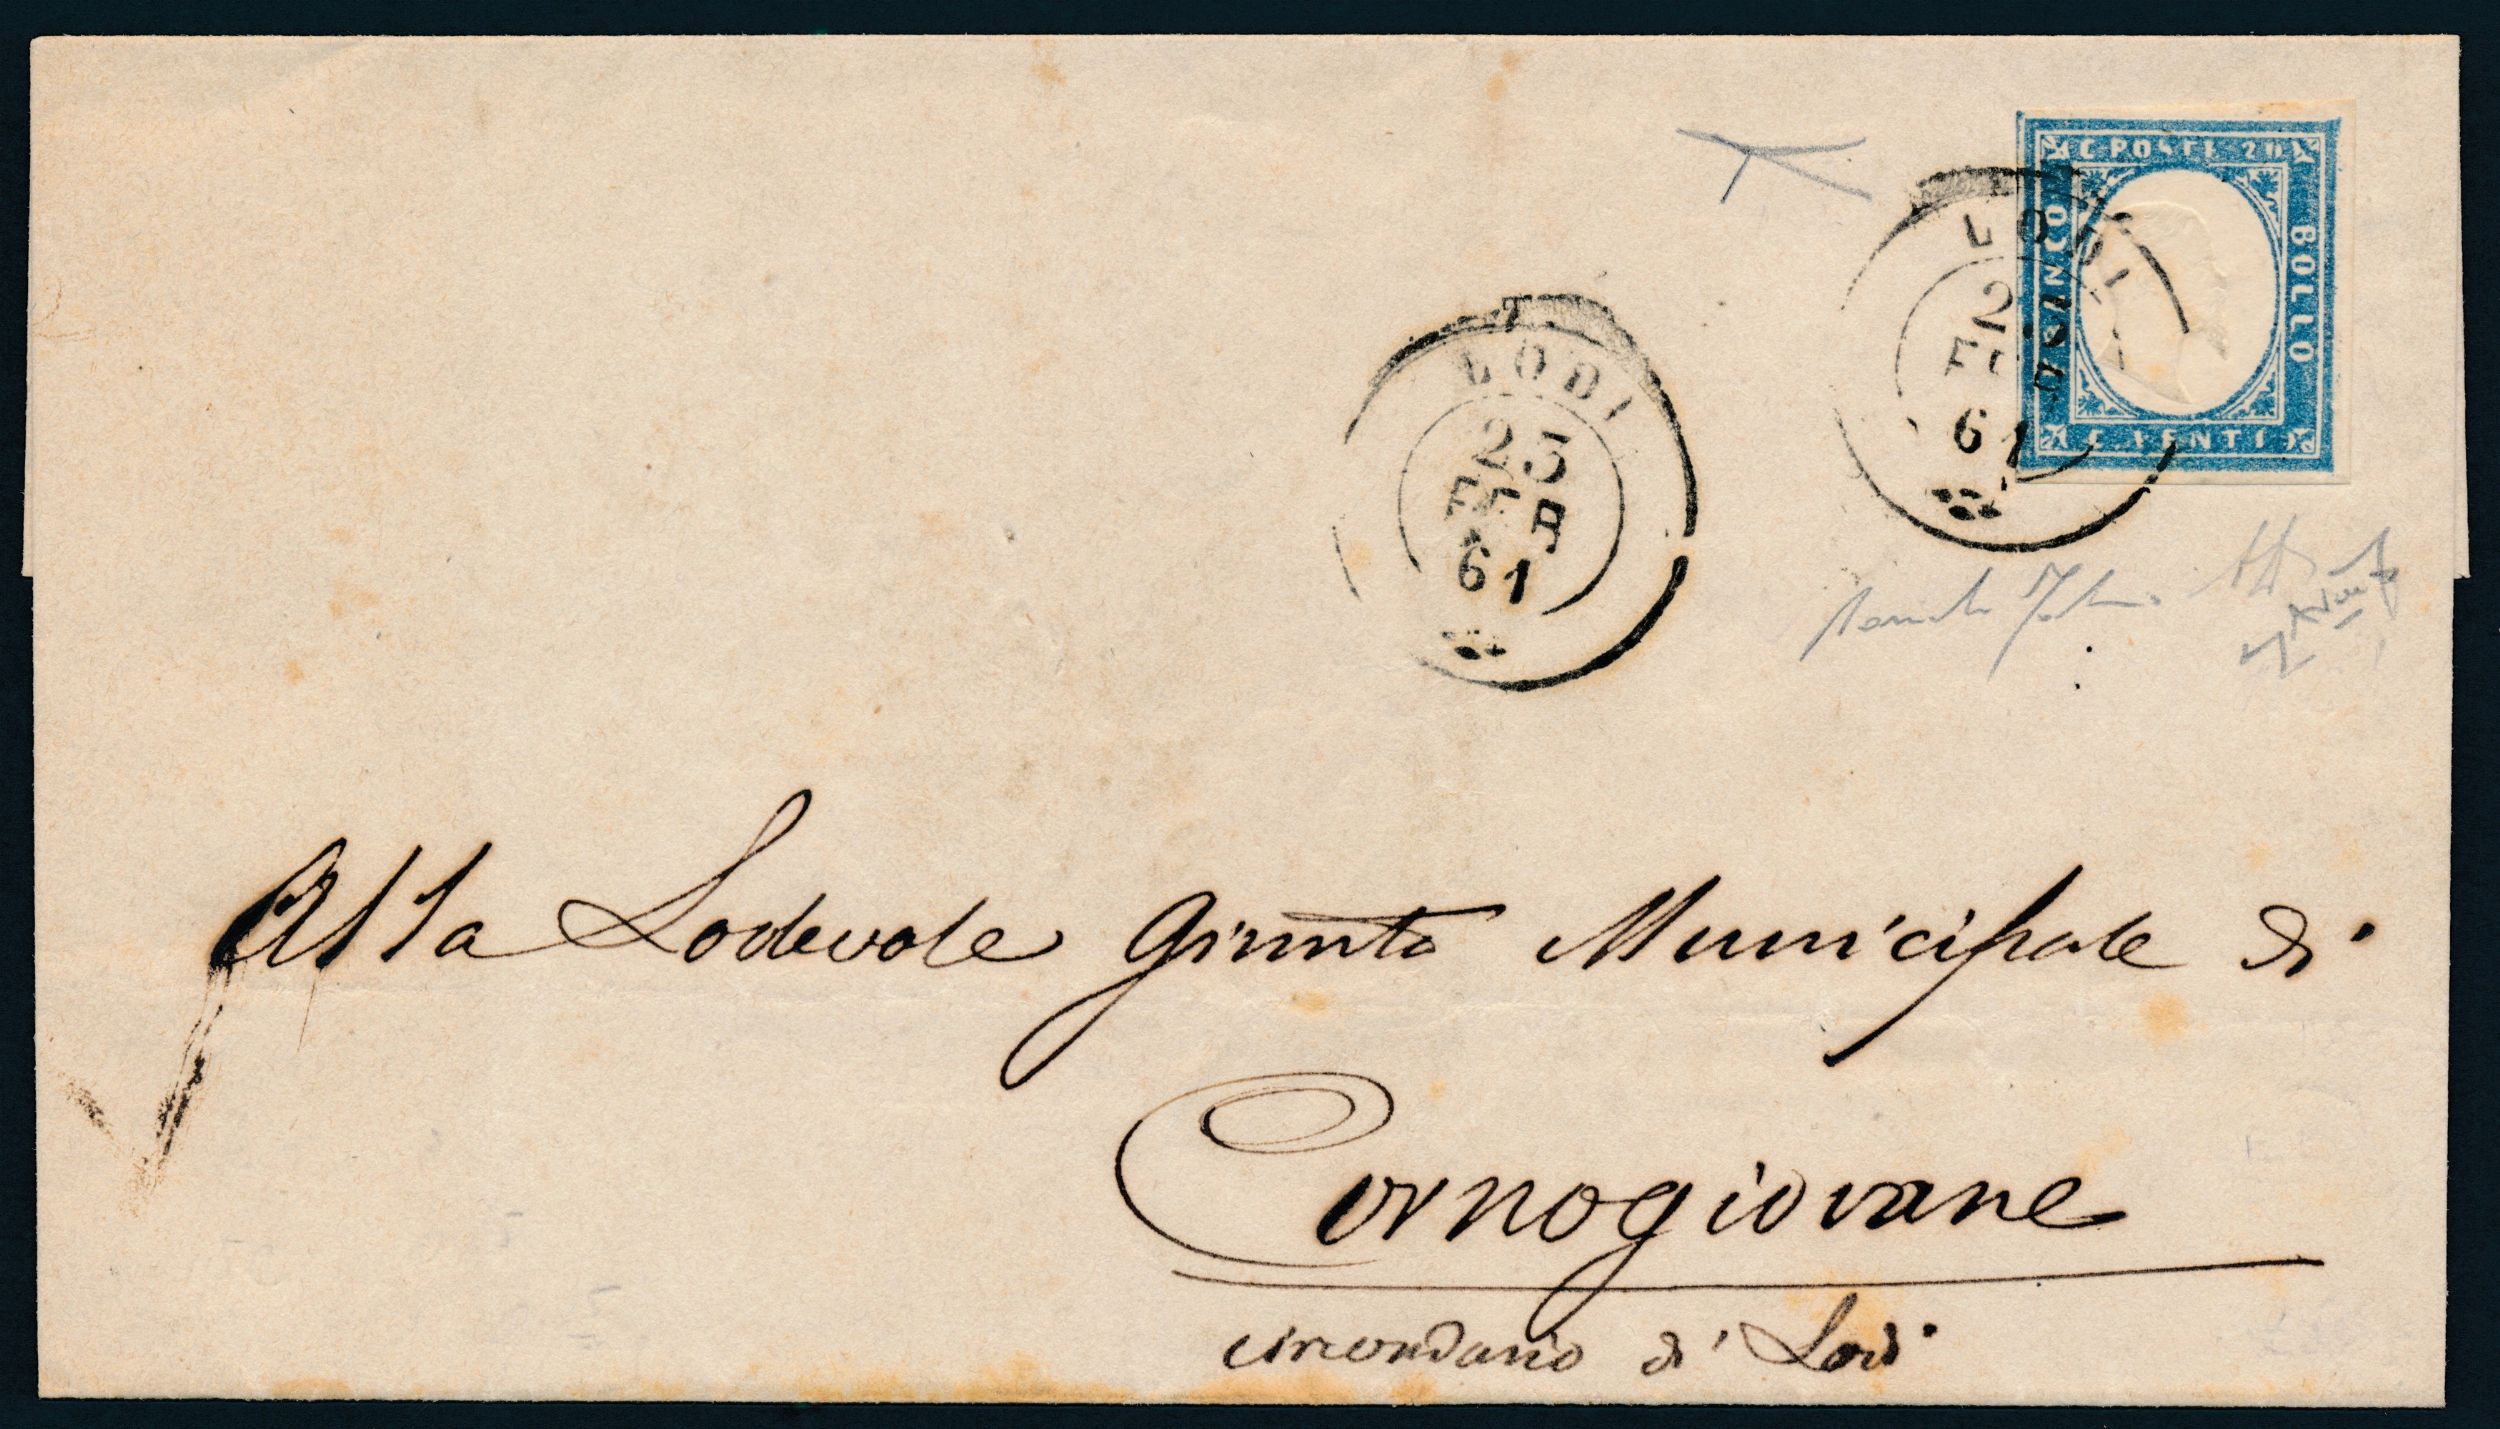 C. POSTE 20
FRANCO
BOLLO
CENTI
LODI
2
FEB
61
LODI
25
FEB
61
Alla Lodevole Giunta Municipale di
Cornogiovane
circondario di Lodi